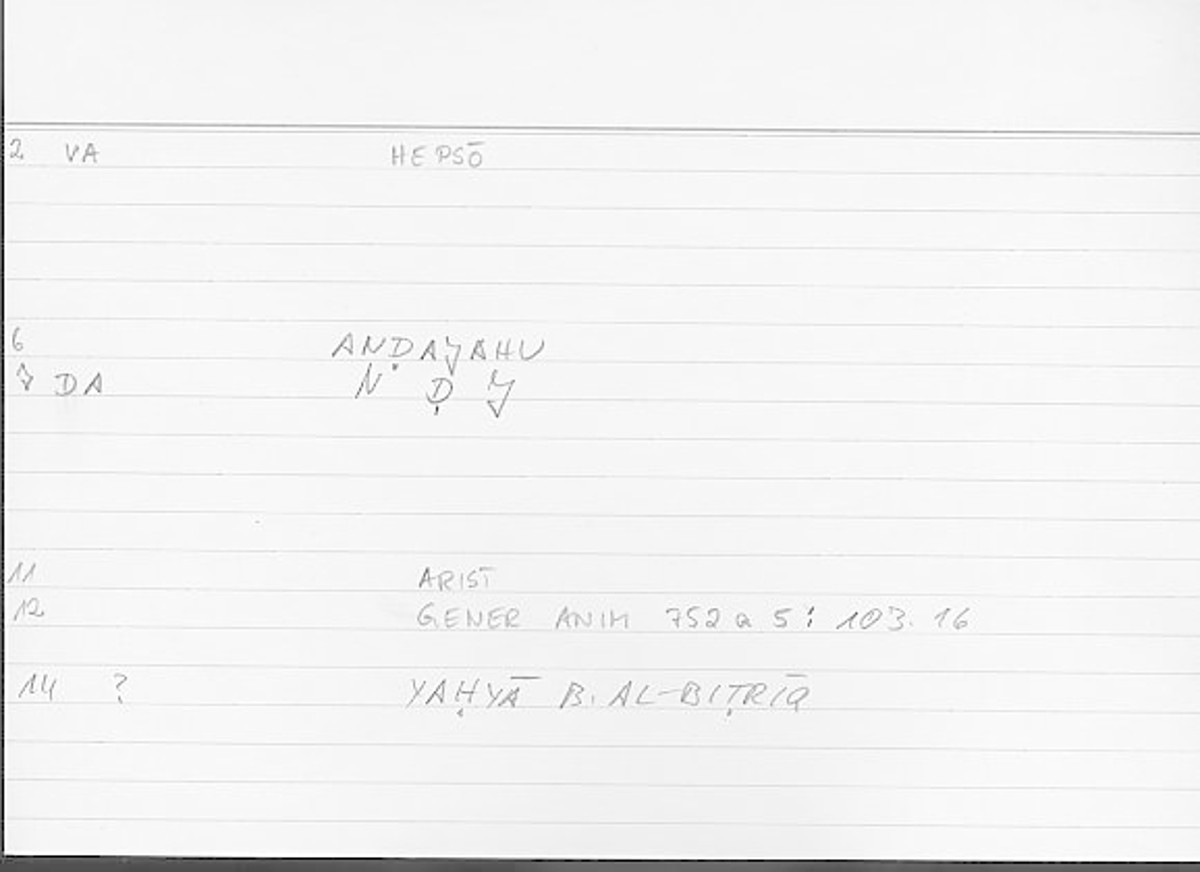 2 VA HEPSŌ
6 ANḌAJAHU
DA N Ḍ J
11 ARIST
12 GENER ANIM 752 a 5 : 103.16
14 ? YAḤYĀ B. AL-BIṬRĪQ